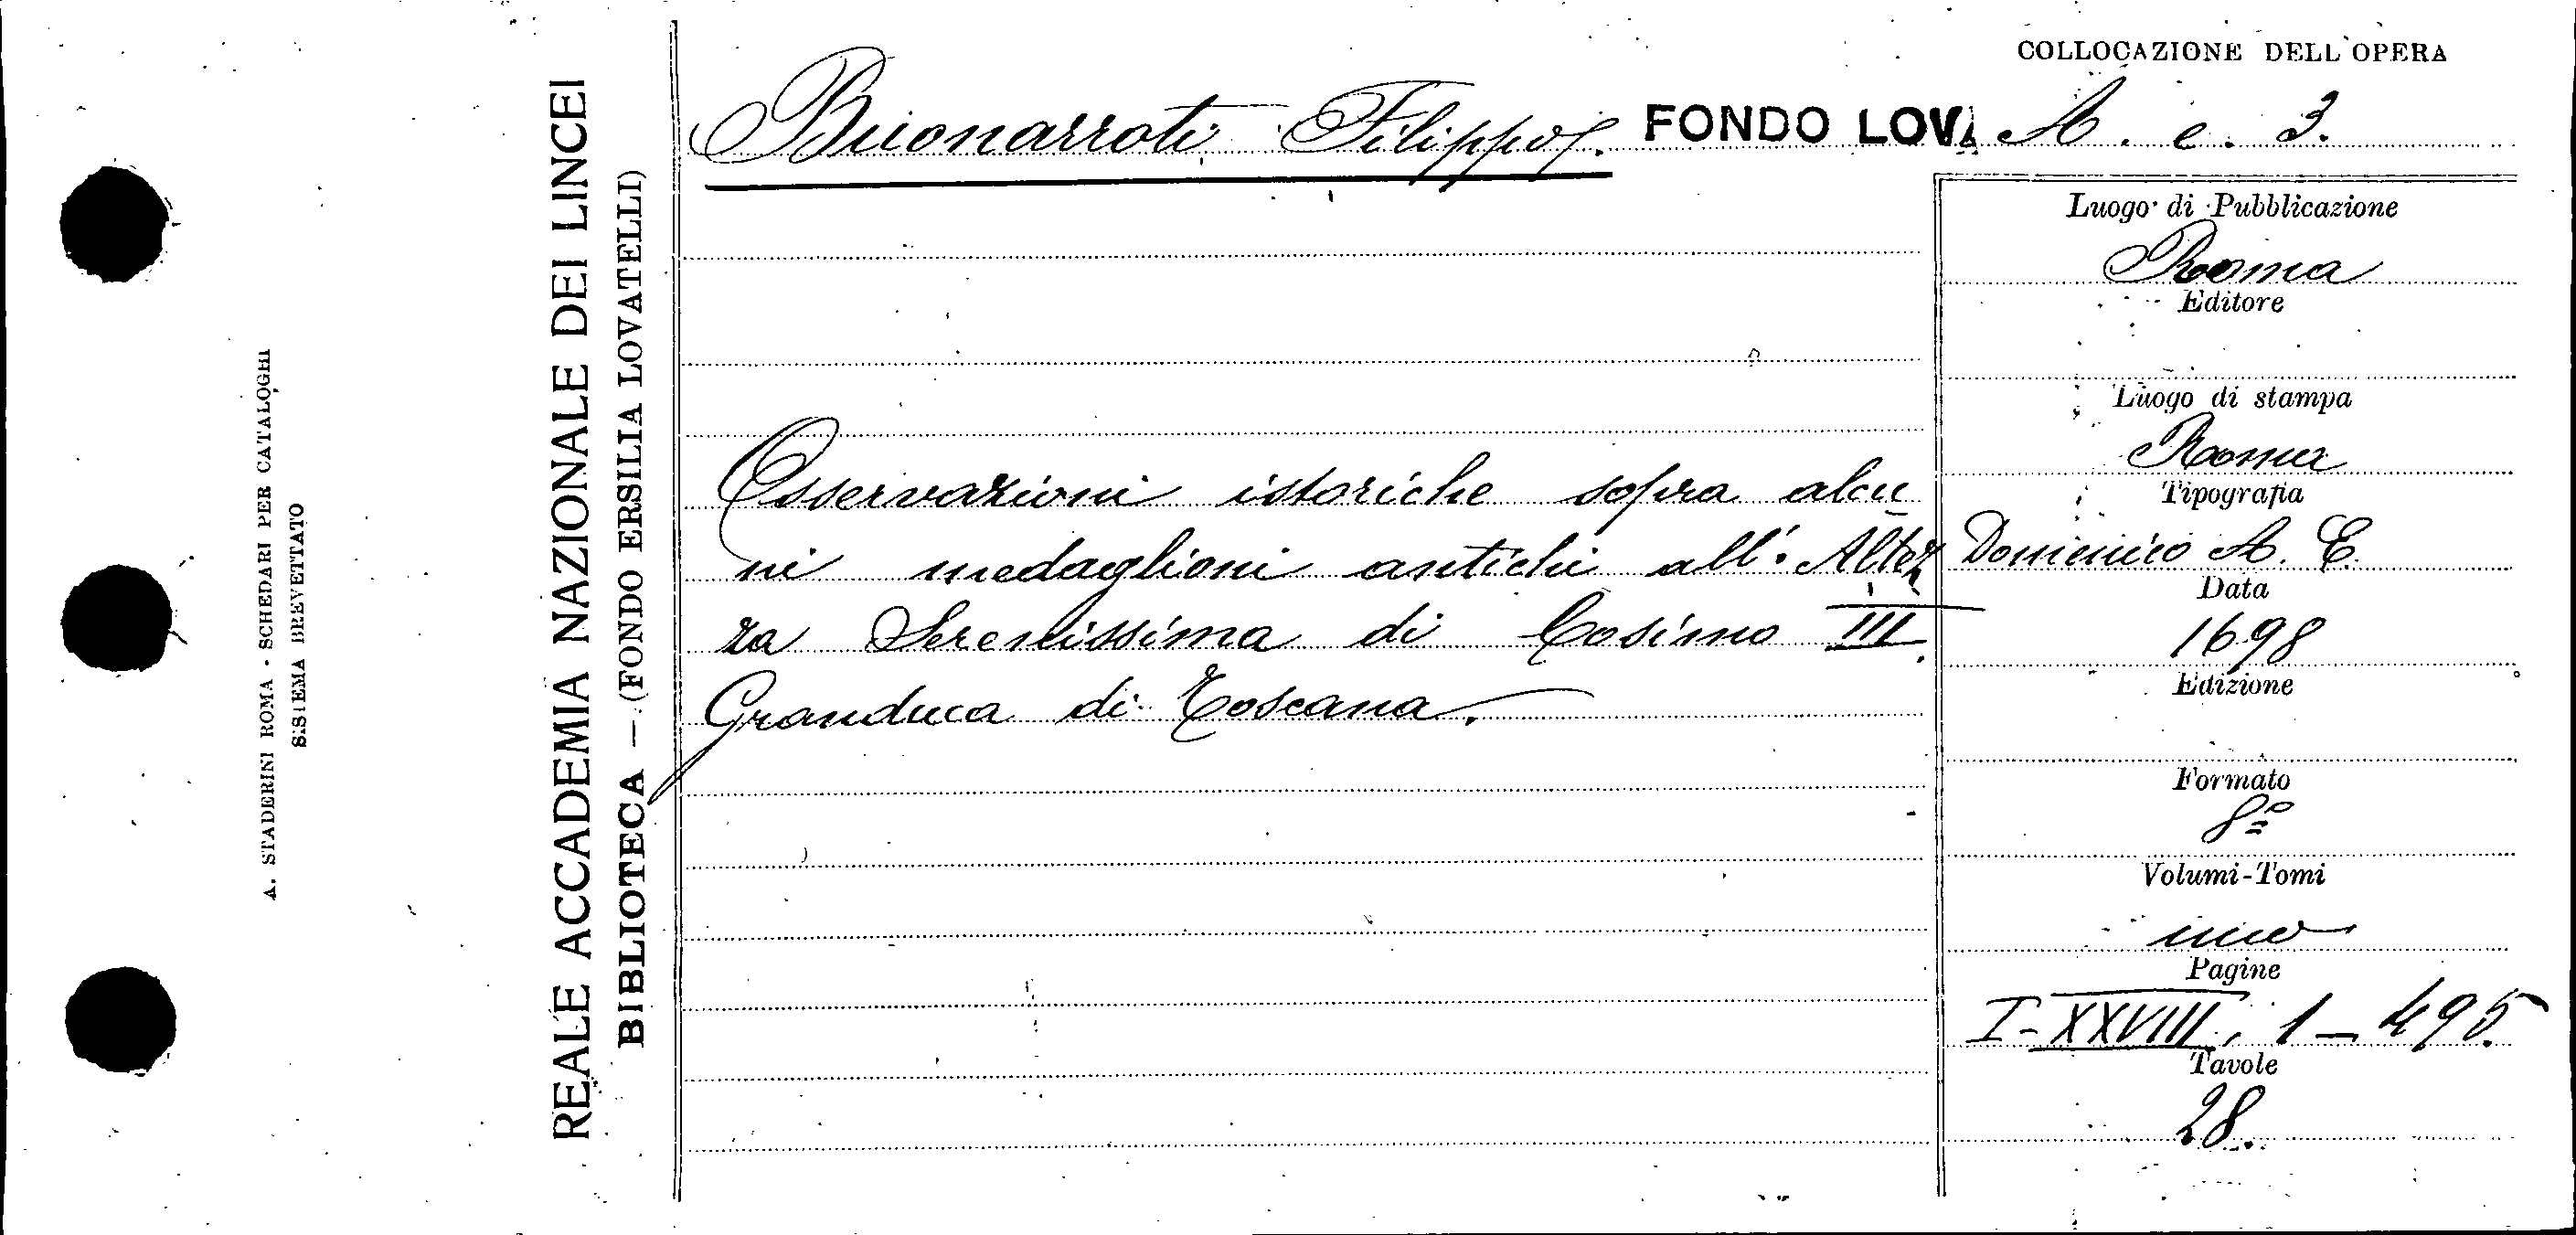 COLLOCAZIONE DELL'OPERA
Buonarroti Filippo. FONDO LOV. A. e. 3.
Osservazioni istoriche sopra alcu
ni medaglioni antichi all'Altez
za Serenissima di Cosimo III.
Granduca di Toscana.
Luogo di Pubblicazione
Roma
Editore
Luogo di stampa
Roma
Tipografia
Domenico A. E.
Data
1698
Edizione
Formato
8º
Volumi-Tomi
uno
Pagine
I-XXVIII; 1-495.
Tavole
28.
REALE ACCADEMIA NAZIONALE DEI LINCEI
BIBLIOTECA — (FONDO ERSILIA LOVATELLI)
A. STADERINI ROMA - SCHEDARI PER CATALOGHI
SISTEMA BREVETTATO